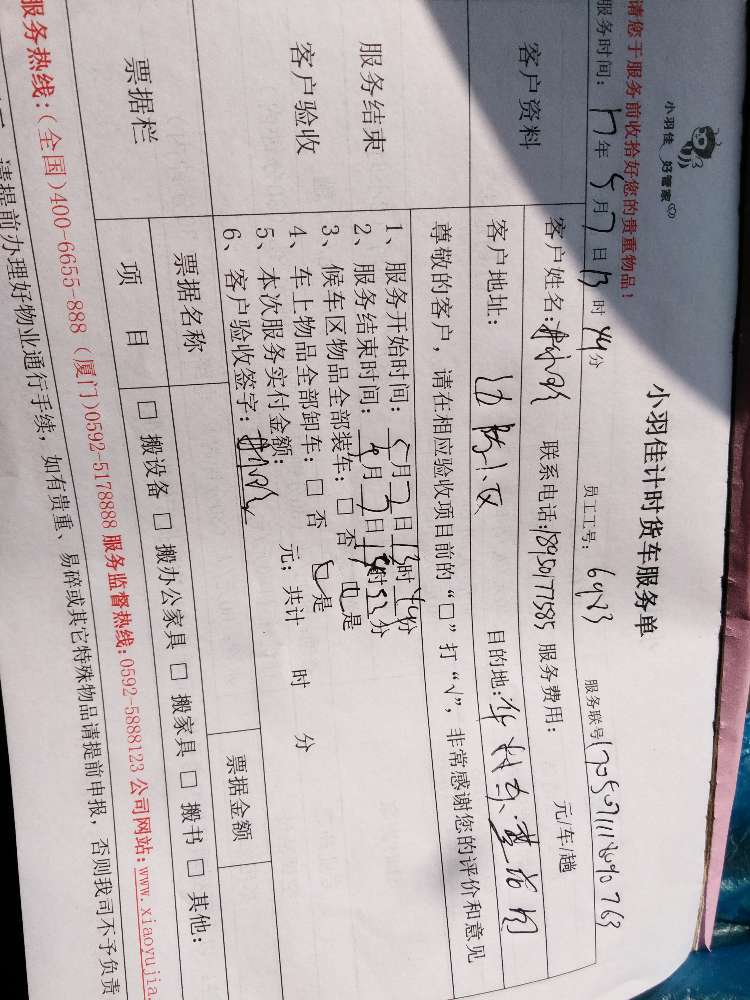 请您于服务前收拾好您的贵重物品！
小羽佳 好管家
小羽佳计时货车服务单
服务时间：17年5月7日13时44分 员工工号：6923 服务联号
客户资料
客户姓名： 联系电话：18950177585 服务费用： 元/车/趟
客户地址： 小区 目的地：
服务结束
客户验收
尊敬的客户，请在相应验收项目前的“□”打“√”，非常感谢您的评价和意见
1、服务开始时间：5月7日13时44分
2、服务结束时间：月7日时52分
3、候车区物品全部装车：□ 否 □是
4、车上物品全部卸车：□ 否 □是
5、本次服务实付金额： 元；共计 时 分
6、客户验收签字：
票据栏
票据名称 票据金额
项 目 □ 搬设备 □ 搬办公家具 □ 搬家具 □ 搬书 □ 其他：
服务热线：(全国)400-6655-888 (厦门)0592-5178888 服务监督热线：0592-5888123 公司网站：www.xiaoyujia.
请提前办理好物业通行手续，如有贵重、易碎或其它特殊物品请提前申报，否则我司不予负责